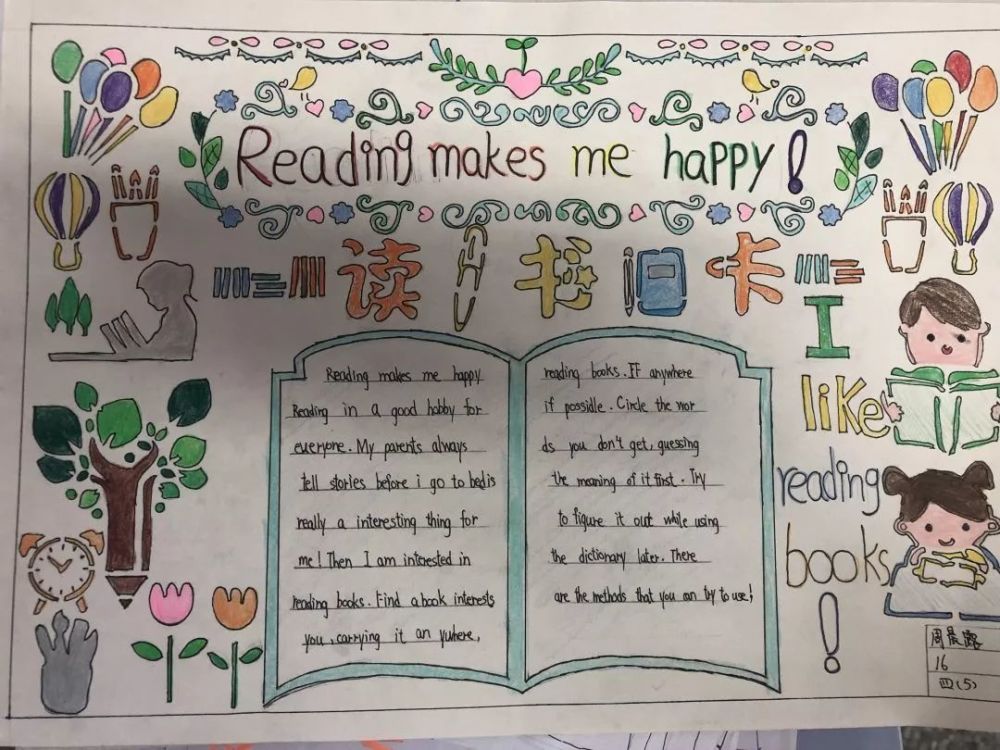 Reading makes me happy!
读书卡
I
like
reading
books
!
Reading makes me happy
Reading in a good hobby for
everyone. My parents always
tell stories before i go to bed is
really a interesting thing for
me! Then I am interested in
reading books. Find a book interests
you, carrying it an yuhere,
reading books. IF anywhere
if possidle. Circle the wor
ds you don't get, guessing
the meaning of it first. Try
to figure it out while using
the dictionary later. There
are the methods that you can try to use!
周晨露
16
四(5)